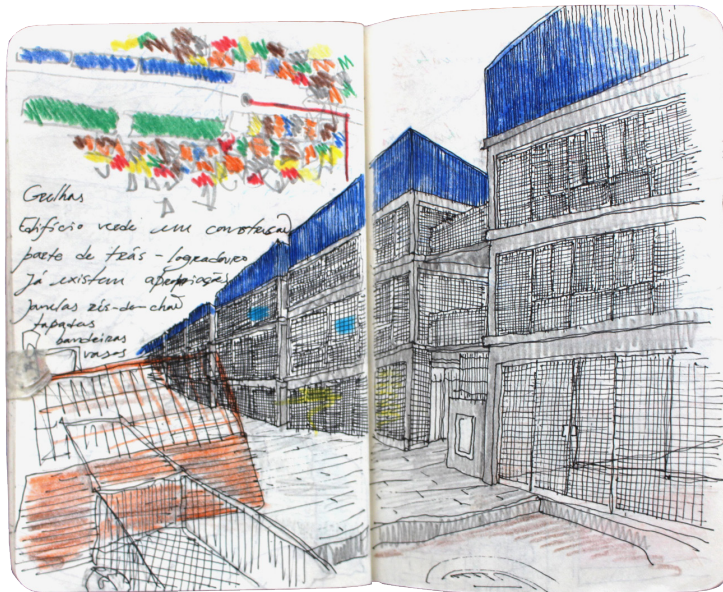 Grelhas
Edifício verde em construção
parte de trás - logradouro
Já existem apropriações
janelas rés-do-chão
tapadas
bandeiras
vasos